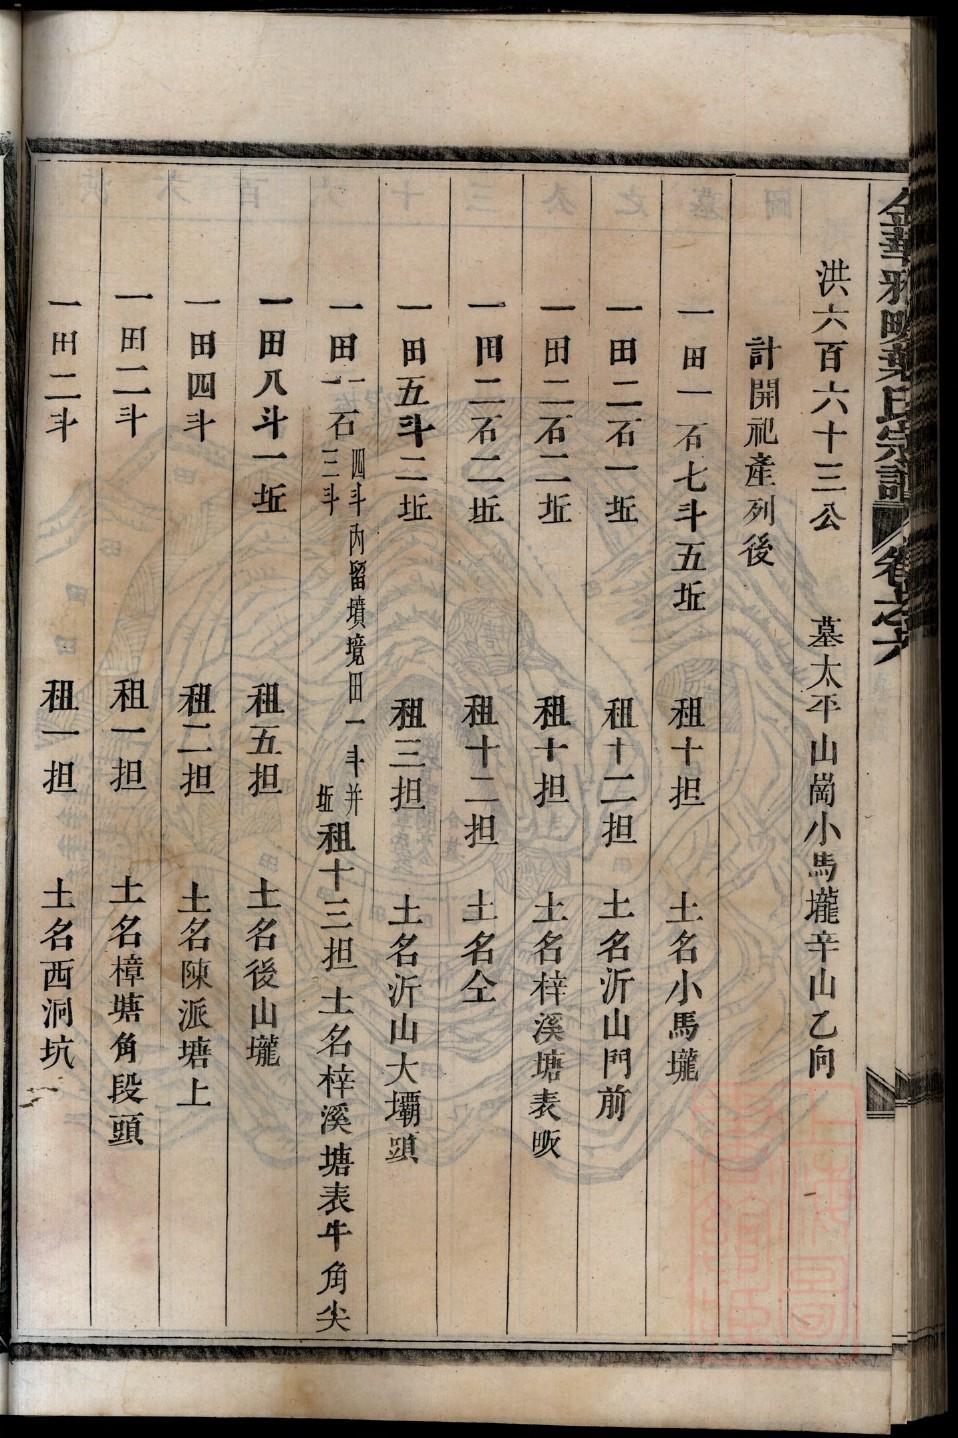 金華雅畈葉氏宗譜 卷之六
洪六百六十三公 墓太平山崗小馬壠辛山乙向
計開祀產列後
一田一石七斗五坵 租十担 土名小馬壠
一田二石一坵 租十二担 土名沂山門前
一田二石二坵 租十担 土名梓溪塘表畈
一田二石二坵 租十二担 土名仝
一田五斗二坵 租三担 土名沂山大壩頭
一田一石四斗內留墳境田一斗并一三斗坵 租十三担 土名梓溪塘表牛角尖
一田八斗一坵 租五担 土名後山壠
一田四斗 租二担 土名陳派塘上
一田二斗 租一担 土名樟塘角段頭
一田二斗 租一担 土名西洞坑